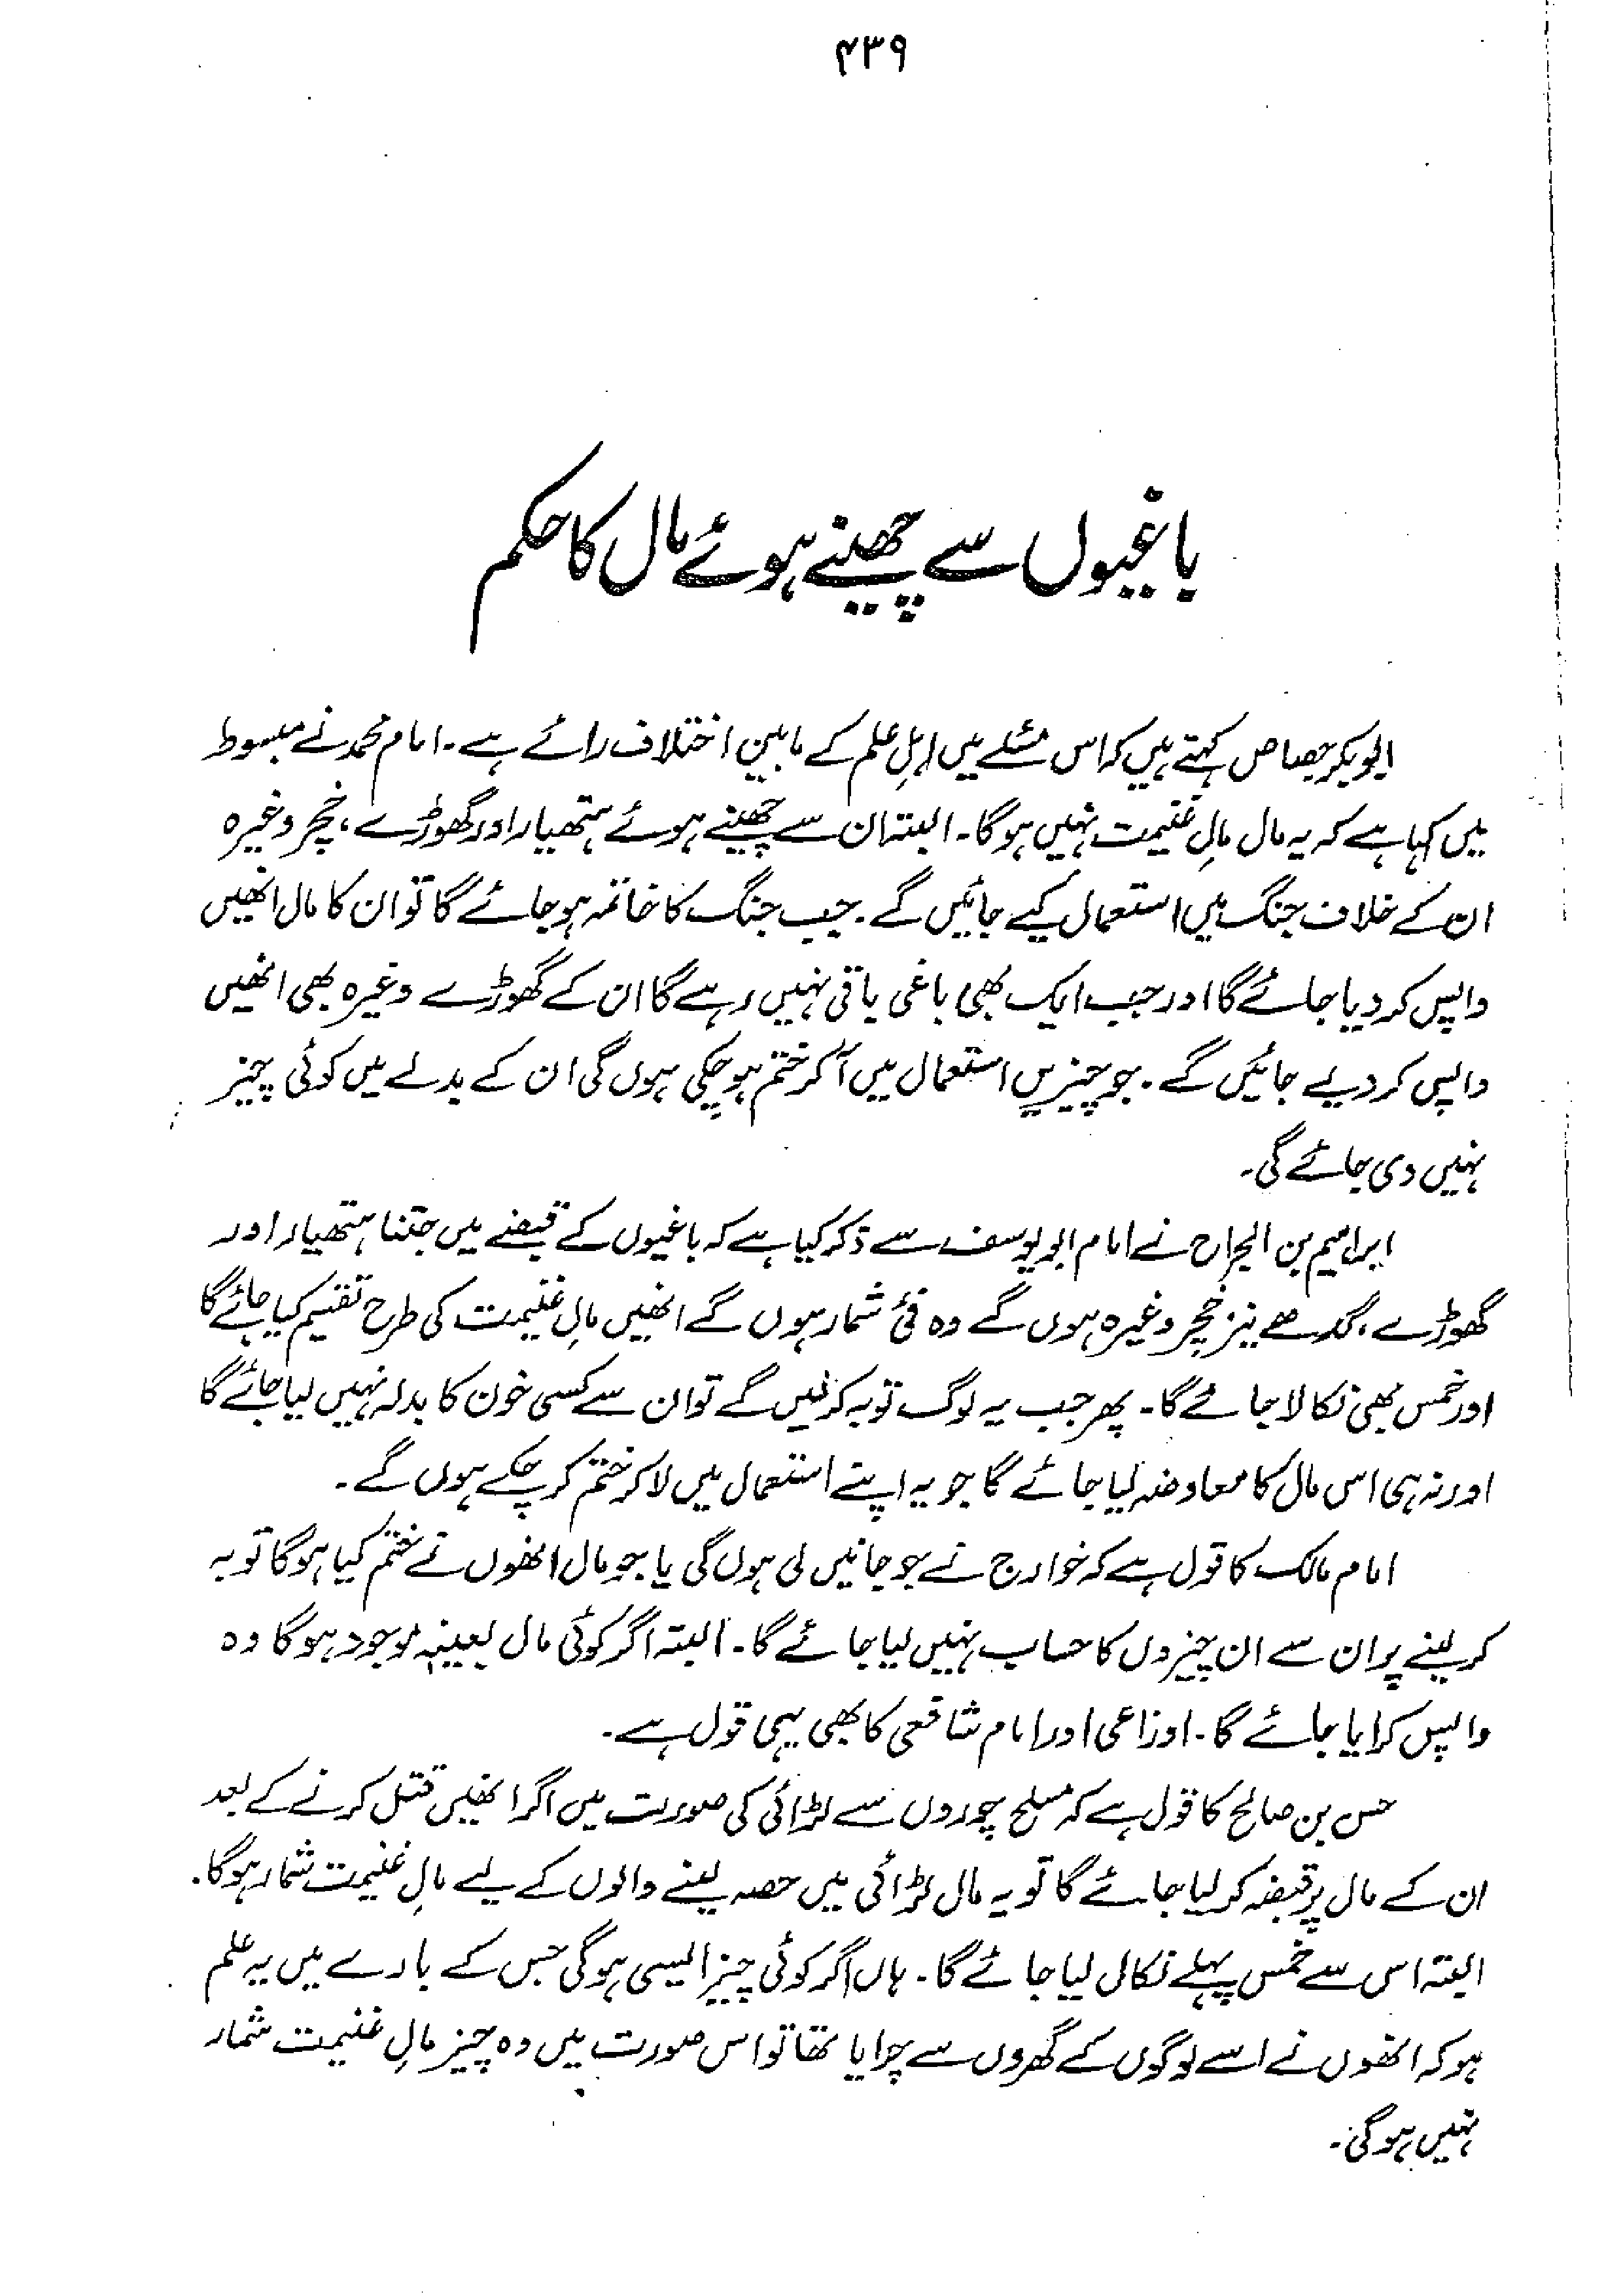 ۴۳۹
باغیوں سے چھینے ہوئے مال کا حکم
ابوبکر جصاص کہتے ہیں کہ اس مسئلے میں اہلِ علم کے مابین اختلاف رائے ہے۔ امام محمد نے مبسوط
میں کہا ہے کہ یہ مال مالِ غنیمت نہیں ہوگا۔ البتہ ان سے چھینے ہوئے ہتھیار اور گھوڑے، خچر وغیرہ
ان کے خلاف جنگ میں استعمال کیے جائیں گے۔ جب جنگ کا خاتمہ ہو جائے گا تو ان کا مال انھیں
واپس کر دیا جائے گا اور جب ایک بھی باغی باقی نہیں رہے گا ان کے گھوڑے وغیرہ بھی انھیں
واپس کر دیے جائیں گے۔ جو چیزیں استعمال میں آکر ختم ہو چکی ہوں گی ان کے بدلے میں کوئی چیز
نہیں دی جائے گی۔
ابراہیم بن الجراح نے امام ابویوسف سے ذکر کیا ہے کہ باغیوں کے قبضے میں جتنا ہتھیار اور
گھوڑے، گدھے نیز خچر وغیرہ ہوں گے وہ فئ شمار ہوں گے انھیں مالِ غنیمت کی طرح تقسیم کیا جائے گا
اور خمس بھی نکالا جائے گا۔ پھر جب یہ لوگ توبہ کرلیں گے تو ان سے کسی خون کا بدلہ نہیں لیا جائے گا
اور نہ ہی اس مال کا معاوضہ لیا جائے گا جو یہ اپنے استعمال میں لا کر ختم کر چکے ہوں گے۔
امام مالک کا قول ہے کہ خوارج نے جو جانیں لی ہوں گی یا جو مال انھوں نے ختم کیا ہوگا توبہ
کر لینے پر ان سے ان چیزوں کا حساب نہیں لیا جائے گا۔ البتہ اگر کوئی مال بعینہٖ موجود ہوگا وہ
واپس کرایا جائے گا۔ اوزاعی اور امام شافعی کا بھی یہی قول ہے۔
حسن بن صالح کا قول ہے کہ مسلح چوروں سے لڑائی کی صورت میں اگر انھیں قتل کرنے کے بعد
ان کے مال پر قبضہ کر لیا جائے گا تو یہ مال لڑائی میں حصہ لینے والوں کے لیے مالِ غنیمت شمار ہوگا۔
البتہ اس سے خمس پہلے نکال لیا جائے گا۔ ہاں اگر کوئی چیز ایسی ہوگی جس کے بارے میں یہ علم
ہو کہ انھوں نے اسے لوگوں کے گھروں سے چرایا تھا تو اس صورت میں وہ چیز مالِ غنیمت شمار
نہیں ہوگی۔